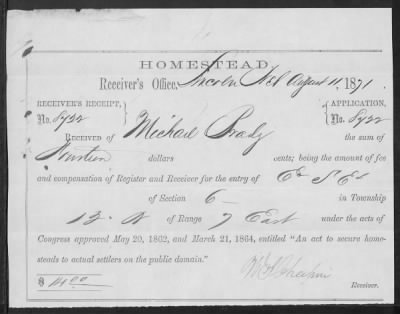 HOMESTEAD.
Receiver's Office, Lincoln Neb August 11, 1871.
RECEIVER'S RECEIPT, APPLICATION,
No. 8922 Michael Brady No. 8922
RECEIVED of the sum of
Fourteen dollars cents; being the amount of fee
and compensation of Register and Receiver for the entry of
of Section 6 in Township
12 N of Range 7 East under the acts of
Congress approved May 20, 1862, and March 21, 1864, entitled "An act to secure home-
steads to actual settlers on the public domain."
$ 14.00
Receiver.